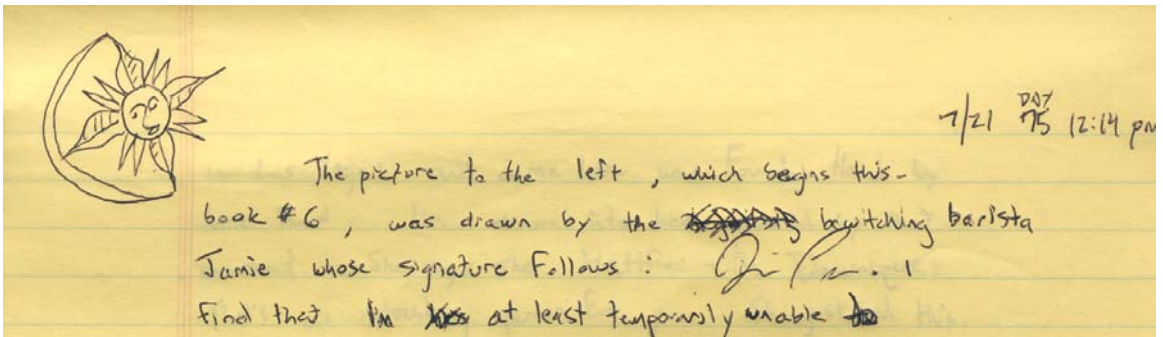 7/21 DAY 75 12:14 pm
The picture to the left, which begins this
book #6, was drawn by the bewitching barista
Jamie whose signature follows: . I
find that I'm at least temporarily unable to